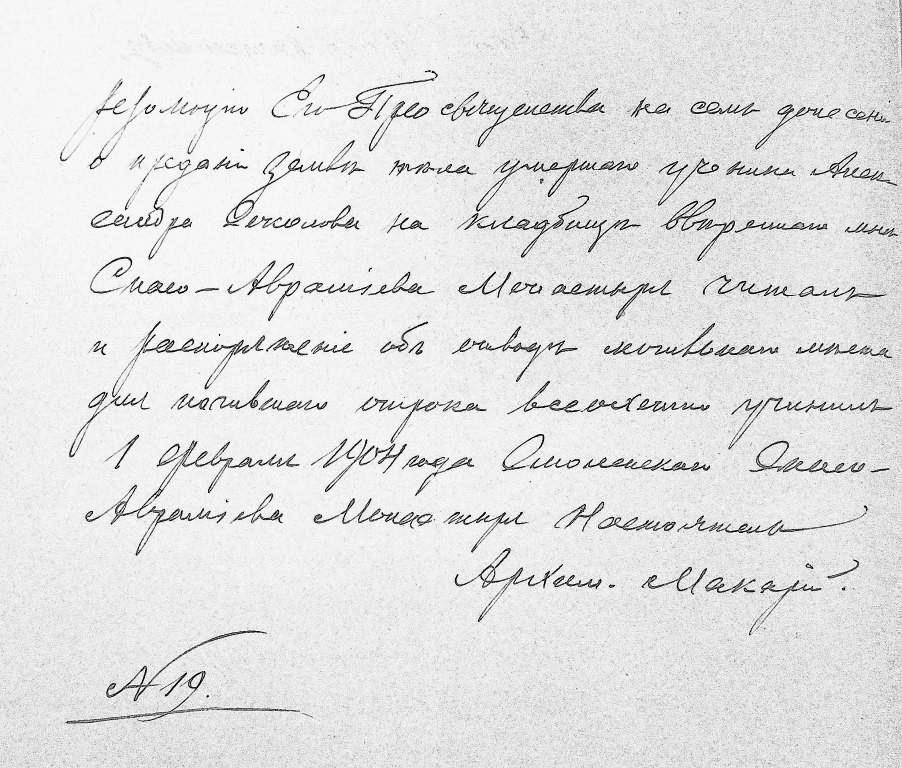 Резолюцію Его Преосвященства на семъ донесені
о преданіи землѣ тѣла умершаго ученика Алек
сандра на кладбищѣ ввѣреннаго мнѣ
Спасо-Авраміева Монастыря читалъ
и распоряженіе объ отводѣ могильнаго мѣста
для почившаго отрока всеохотно учинилъ
1 Февраля 1904 года Смоленскаго Спасо-
Авраміева Монастыря Настоятель
Архим. Макарій.
N 19.